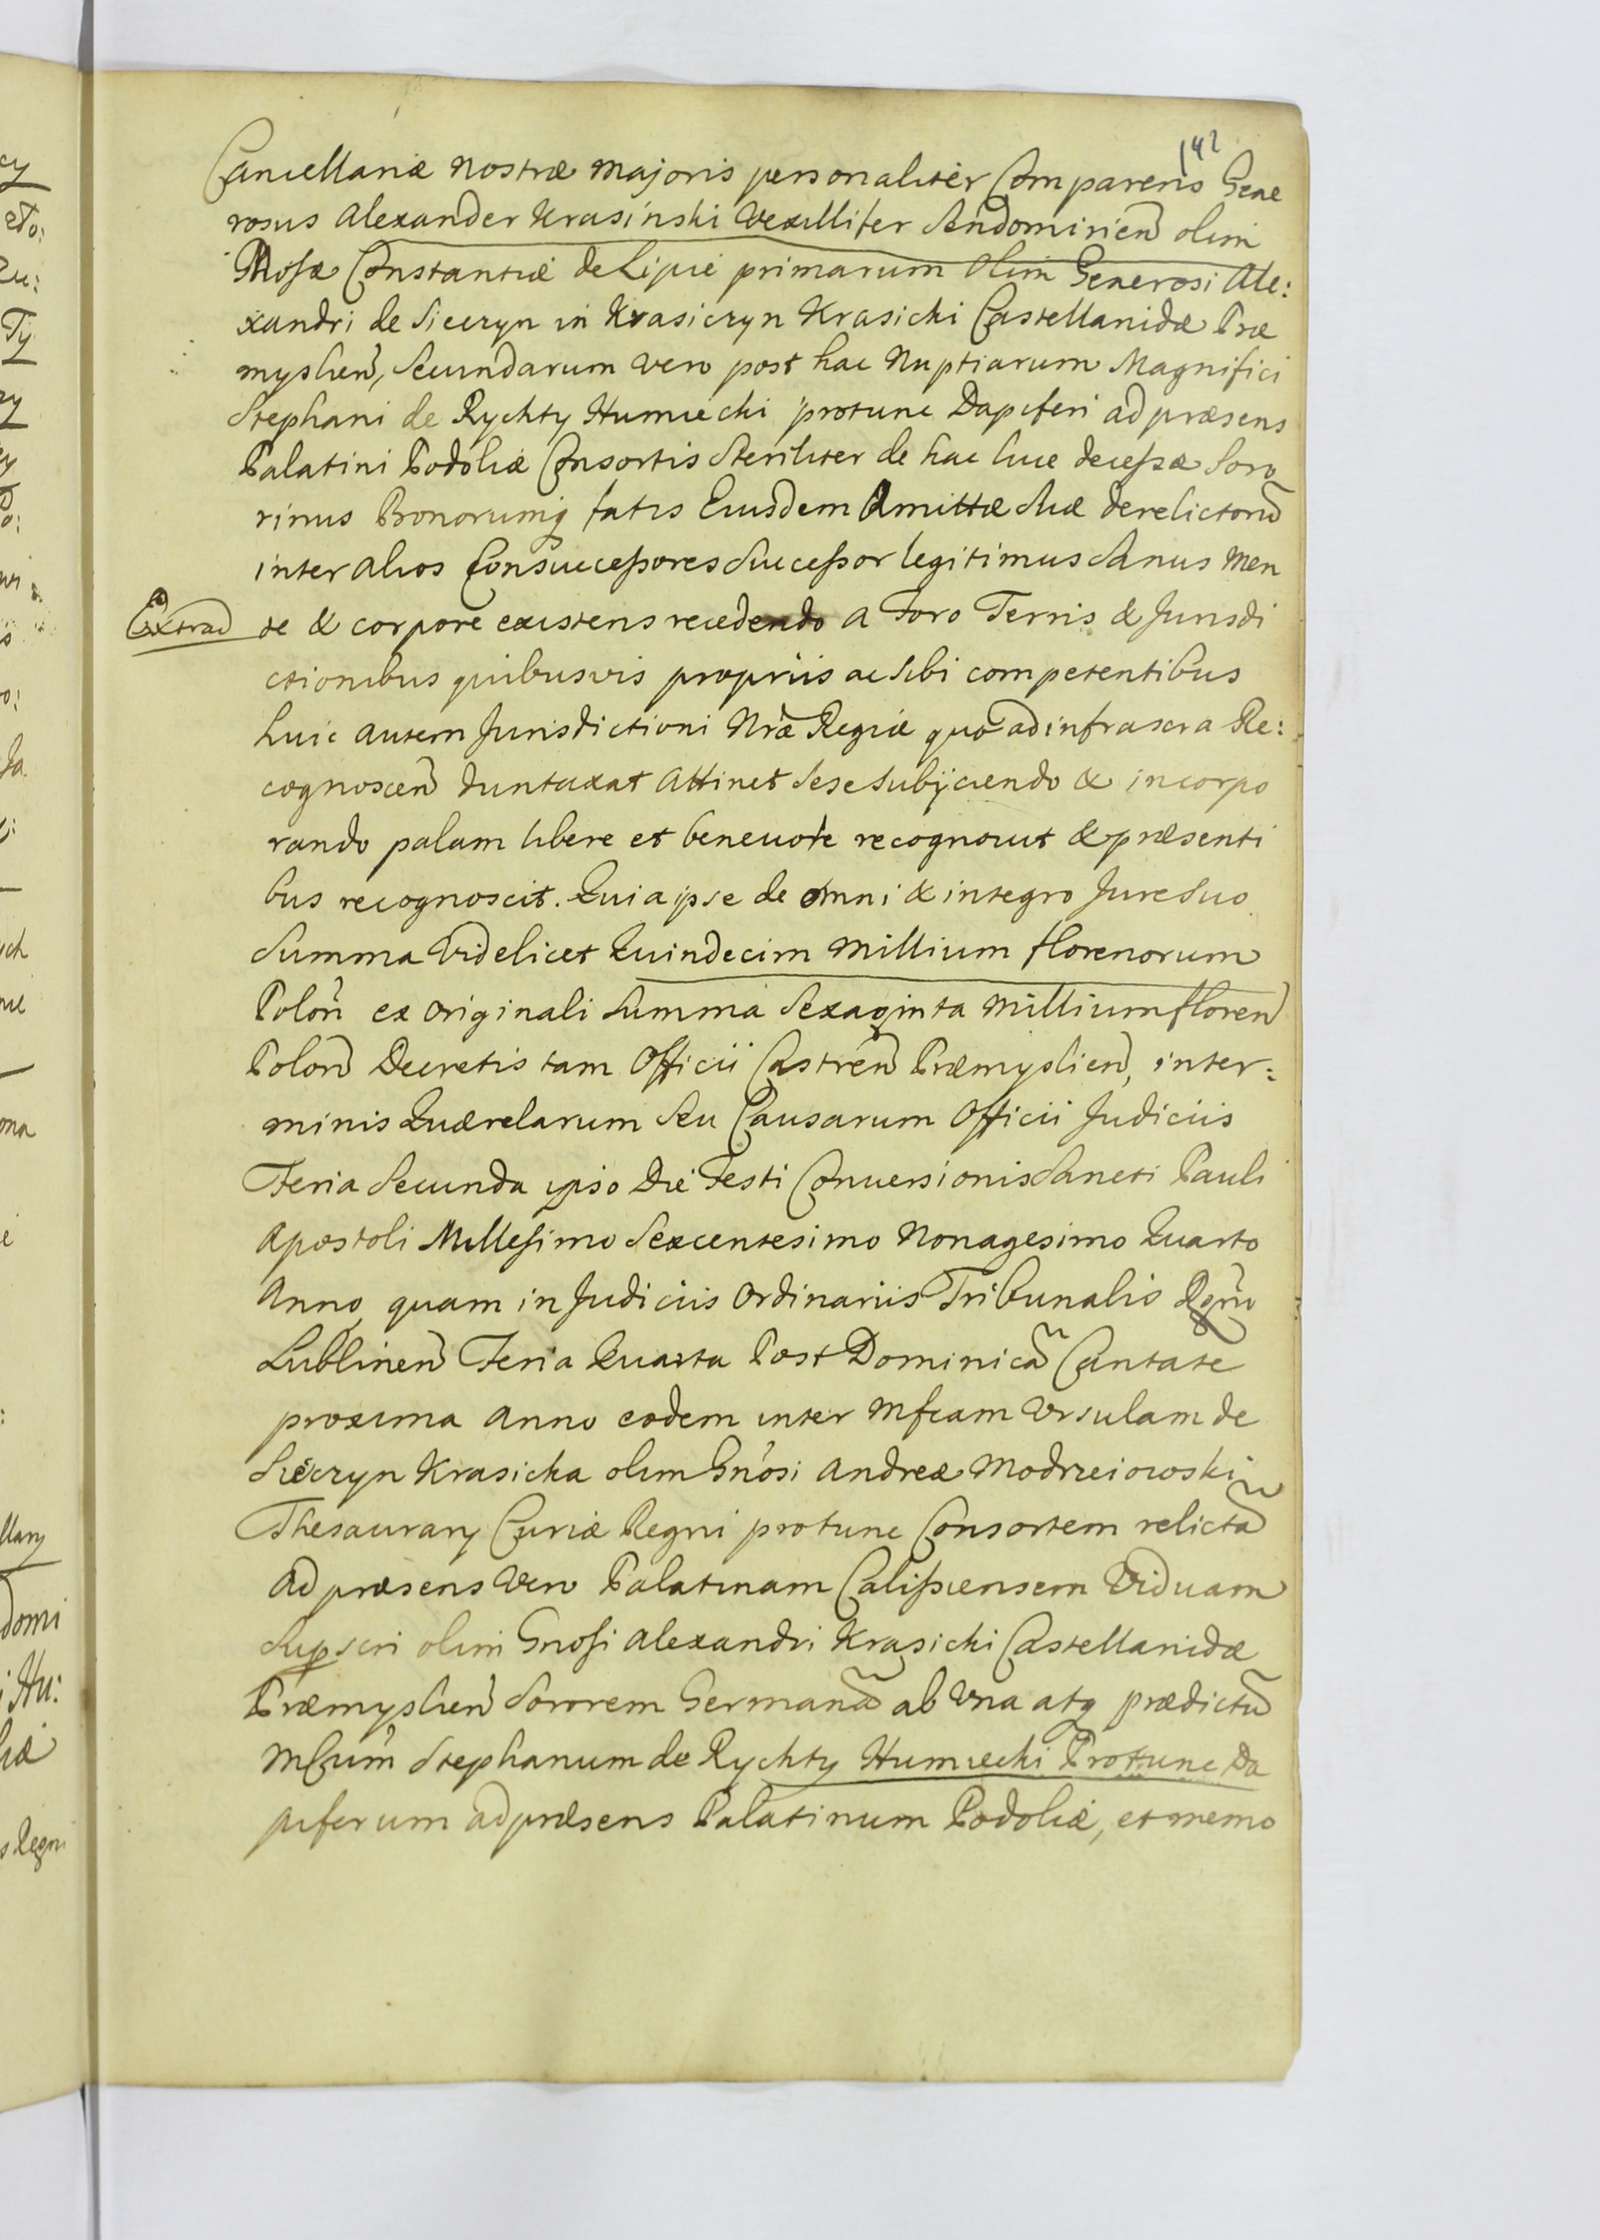 142
Cancellariæ Nostræ Majoris personaliter Comparens Gene
rosus Alexander Krasinski Vexillifer Sandomirien olim
Gnosæ Constantiæ de Lipie primarum Olim Generosi Ale:
xandri de Siecryn in Krasiczyn Krasicki Castellanidæ Præ
myslien, Secundarum vero post hac Nuptiarum Magnifici
Stephani de Rychty Humiecki protunc Dapiferi ad præsens
Palatini Podoliæ Consortis Steriliter de hac luce decessæ Soro
rinus Bonorumq fatis Eiusdem Amittæ Suæ derelictorũ
inter alios Consuccessores Successor legitimus Sanus Men
Extrad
te & corpore existens recedendo a Foro Terris & Jurisdi
ctionibus quibusvis propriis ac Sibi competentibus
huic autem Jurisdictioni Nræ Regiæ quo ad infrascra Re:
cognoscen duntaxat Attinet Sese Subijciendo & incorpo
rando palam libere et benevole recognovit & præsenti
bus recognoscit. Quia ipse de omni & integro Jure Suo
Summa Videlicet Quindecim Millium florenorum
Polon ex Originali Summa Sexaginta Millium floren
Polon Decretis tam Officii Castren Præmyslien, inter:
minis Quærelarum Seu Causarum Officii Judiciis
Feria Secunda ipso Die Festi Conversionis Sancti Pauli
Apostoli Millesimo Sexcentesimo Nonagesimo Quarto
Anno, quam in Judiciis Ordinariis Tribunalis Rgni
Lublinen Feria Quarta Post Dominicã Cantate
proxima Anno eodem inter Mfcam Vrsulam de
Siecryn Krasicka olim Gnosi Andreæ Modrzeiowski
Thesaurary Curiæ Regni protunc Consortem relictã
Ad præsens Vero Palatinam Calissiensem Viduam
Supscri olim Gnosi Alexandri Krasicki Castellanidæ
Præmyslien Sororem Germanã ab Vna atq prædictũ
Mfcum Stephanum de Rychty Humiecki Protunc Da
piferum ad præsens Palatinum Podoliæ, et memo